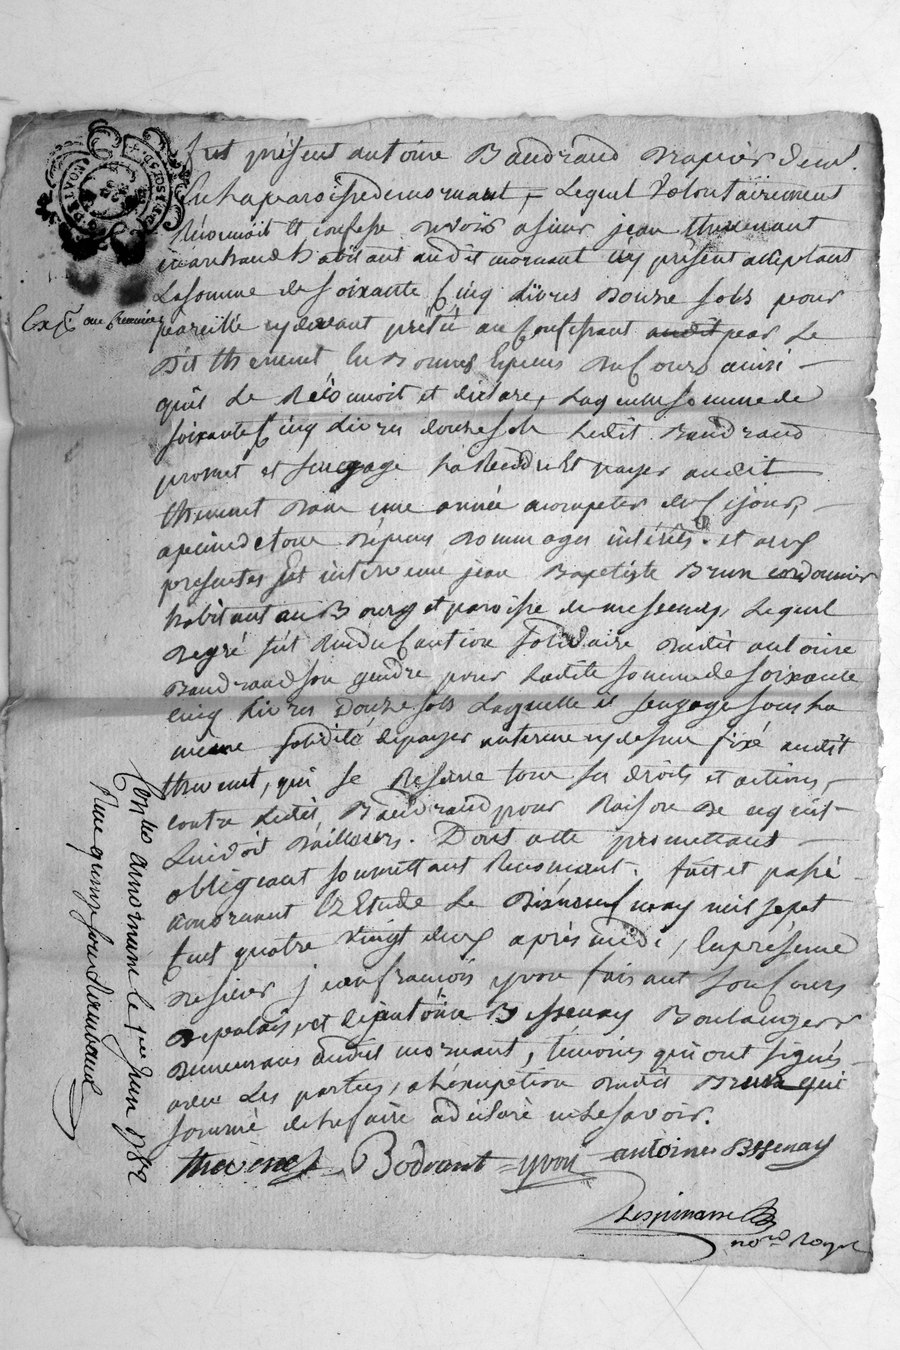 fut présent antoine Baudrand Drapier dem.t
en la paroisse de mornant, = Lequel Volontairement
Reconnoit et confesse devoir a sieur jean thevenant
marchand habitant audit mornant icy présent acceptant
La somme de soixante cinq Livres Douze sols pour
Exp.é au premier
pareille cy devant prêtée au confessant audit par Le
Dit thevenet, en Bonnes Especes Du Cours ainsi —
qu'il Le Reconnoit et déclare, Laquelle somme de
soixante cinq Livres douze sols Ledit Baudrand
promet et s'engage La Rendre Et payer audit
thevenet Dans une année a compter de ce jour, —
a peine de tous Dépens Dommages intérêts. et aux
presentes Est intervenu jean Baptiste Brun cordonnier
habitant au Bourg et paroisse de messemy, Lequel
De gré s'est Rendu Caution solidaire Dudit antoine
Baudrand son gendre pour Ladite somme de soixante
cinq Livres Douze sols Laquelle il s'engage sous La
même solidité de payer au terme cy dessus fixé audit
thevenet, qui se Reserve tous ses droits et actions, —
contre Ledit Baudrand pour Raison De ce qu'il
Lui doit D'ailleurs. Dont acte promettant —
obligeant soumettant Renonçant. fait et passé —
a mornant Ez Etude Le Dixneuf may mil sept
cent quatre Vingt deux après midi, En présence
de sieur jean françois yvon faisant son Cours
De palais, et de antoine Bessenay Boulanger
Demeurans audit mornant, témoins qui ont signés —
avec Les parties, a L'éxception Dudit Brun qui
sommé de Le faire a déclaré ne Le savoir.
thevenet Bodrant = yvon antoine Bessenay
Lespinasse
no.re Royal
Con.lé a mornant le 1.er Juin 1782
Reçu quinze sous